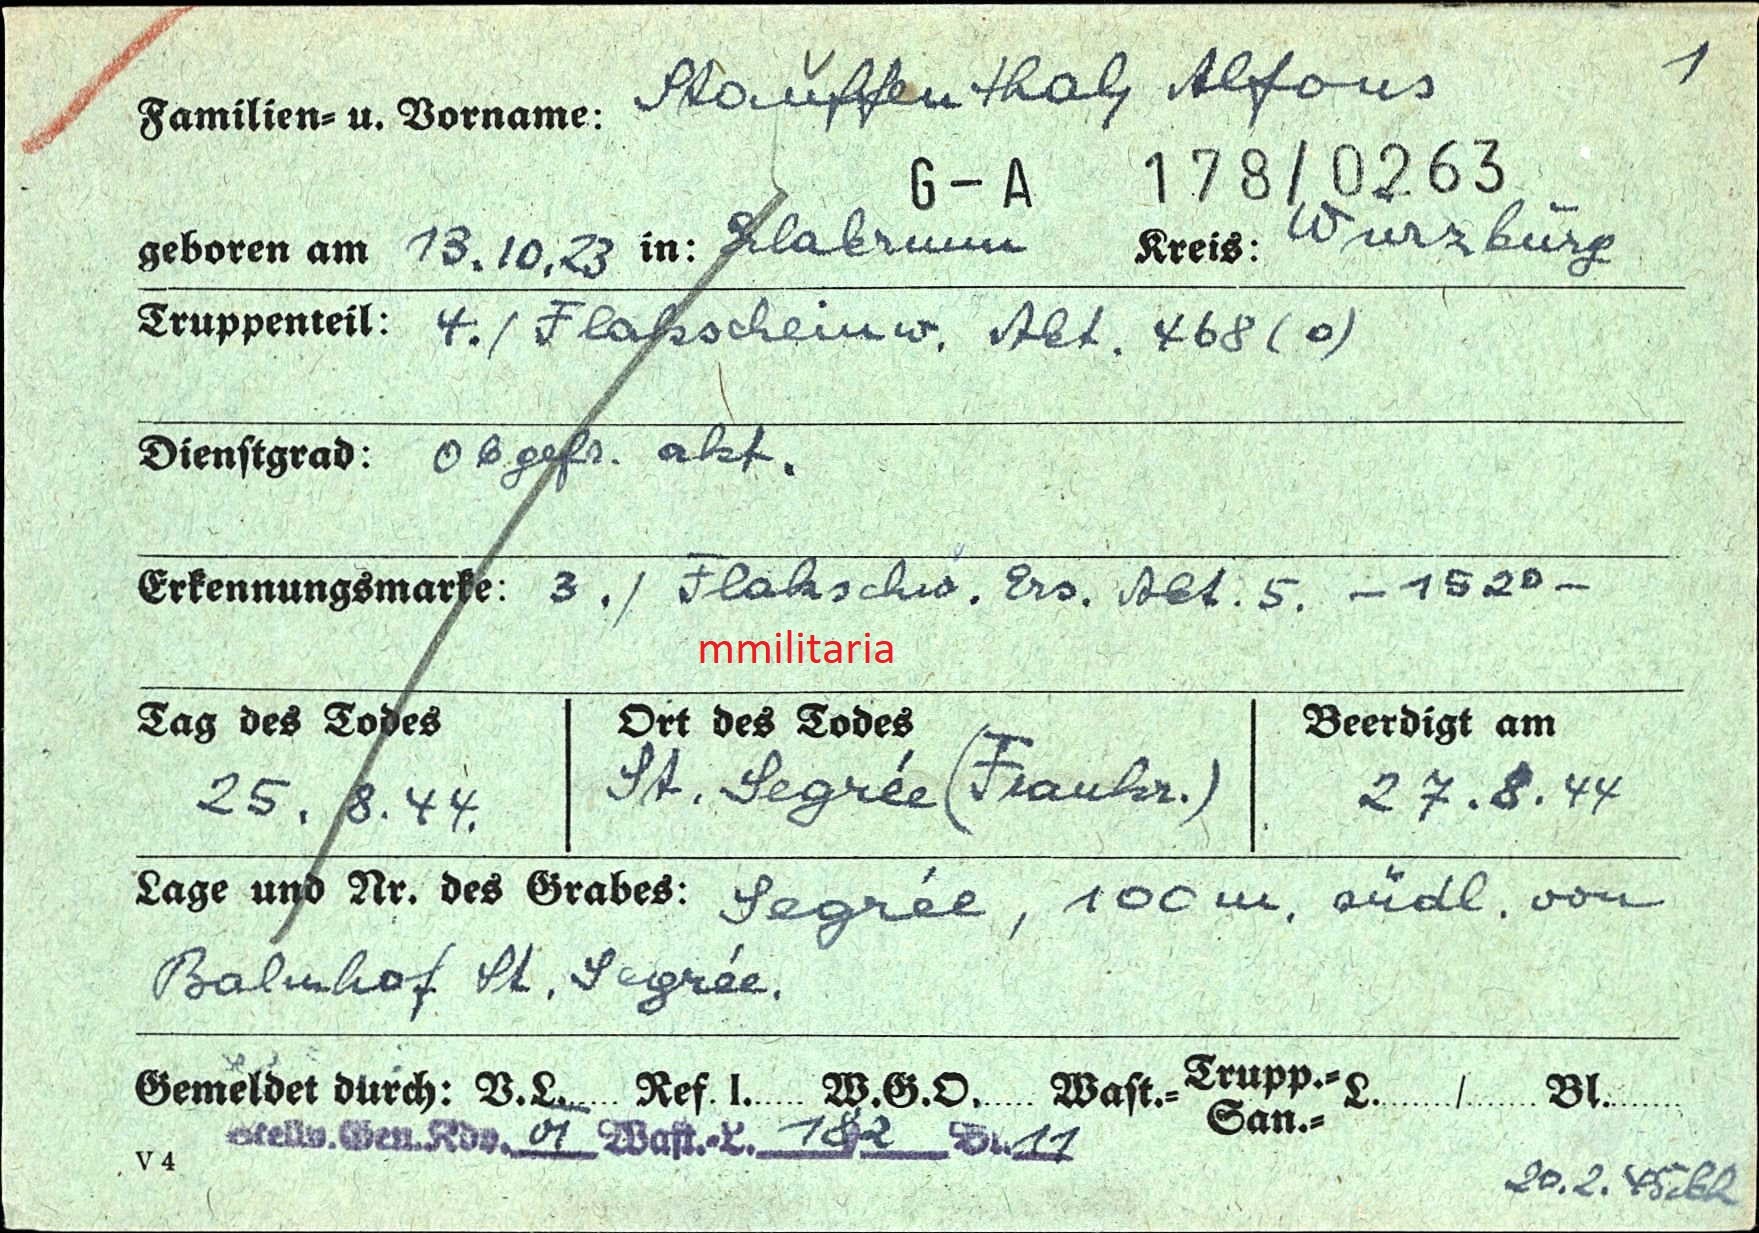 1
Familien- u. Vorname: Stauffenthal, Alfons
G-A 178/0263
geboren am 13.10.23 in: Kreis: Würzburg
Truppenteil: 4./ Flakscheinw. Abt. 468 (o)
Dienstgrad: Obgefr. akt.
Erkennungsmarke: 3./ Flakschw. Ers. Abt. 5. -1520-
mmilitaria
Tag des Todes Ort des Todes Beerdigt am
25. 8. 44. St. Segrée (Frankr.) 27.8.44
Lage und Nr. des Grabes: Segrée, 100 m. südl. von
Bahnhof St. Segrée.
Gemeldet durch: V.L..... Ref. I..... W.G.O..... Wast.- Trupp.- San.- L......../........ Bl.........
Stellv. Gen. Kdo. VI Wast.-L. 182 Bl. 11
V 4
20.2.45